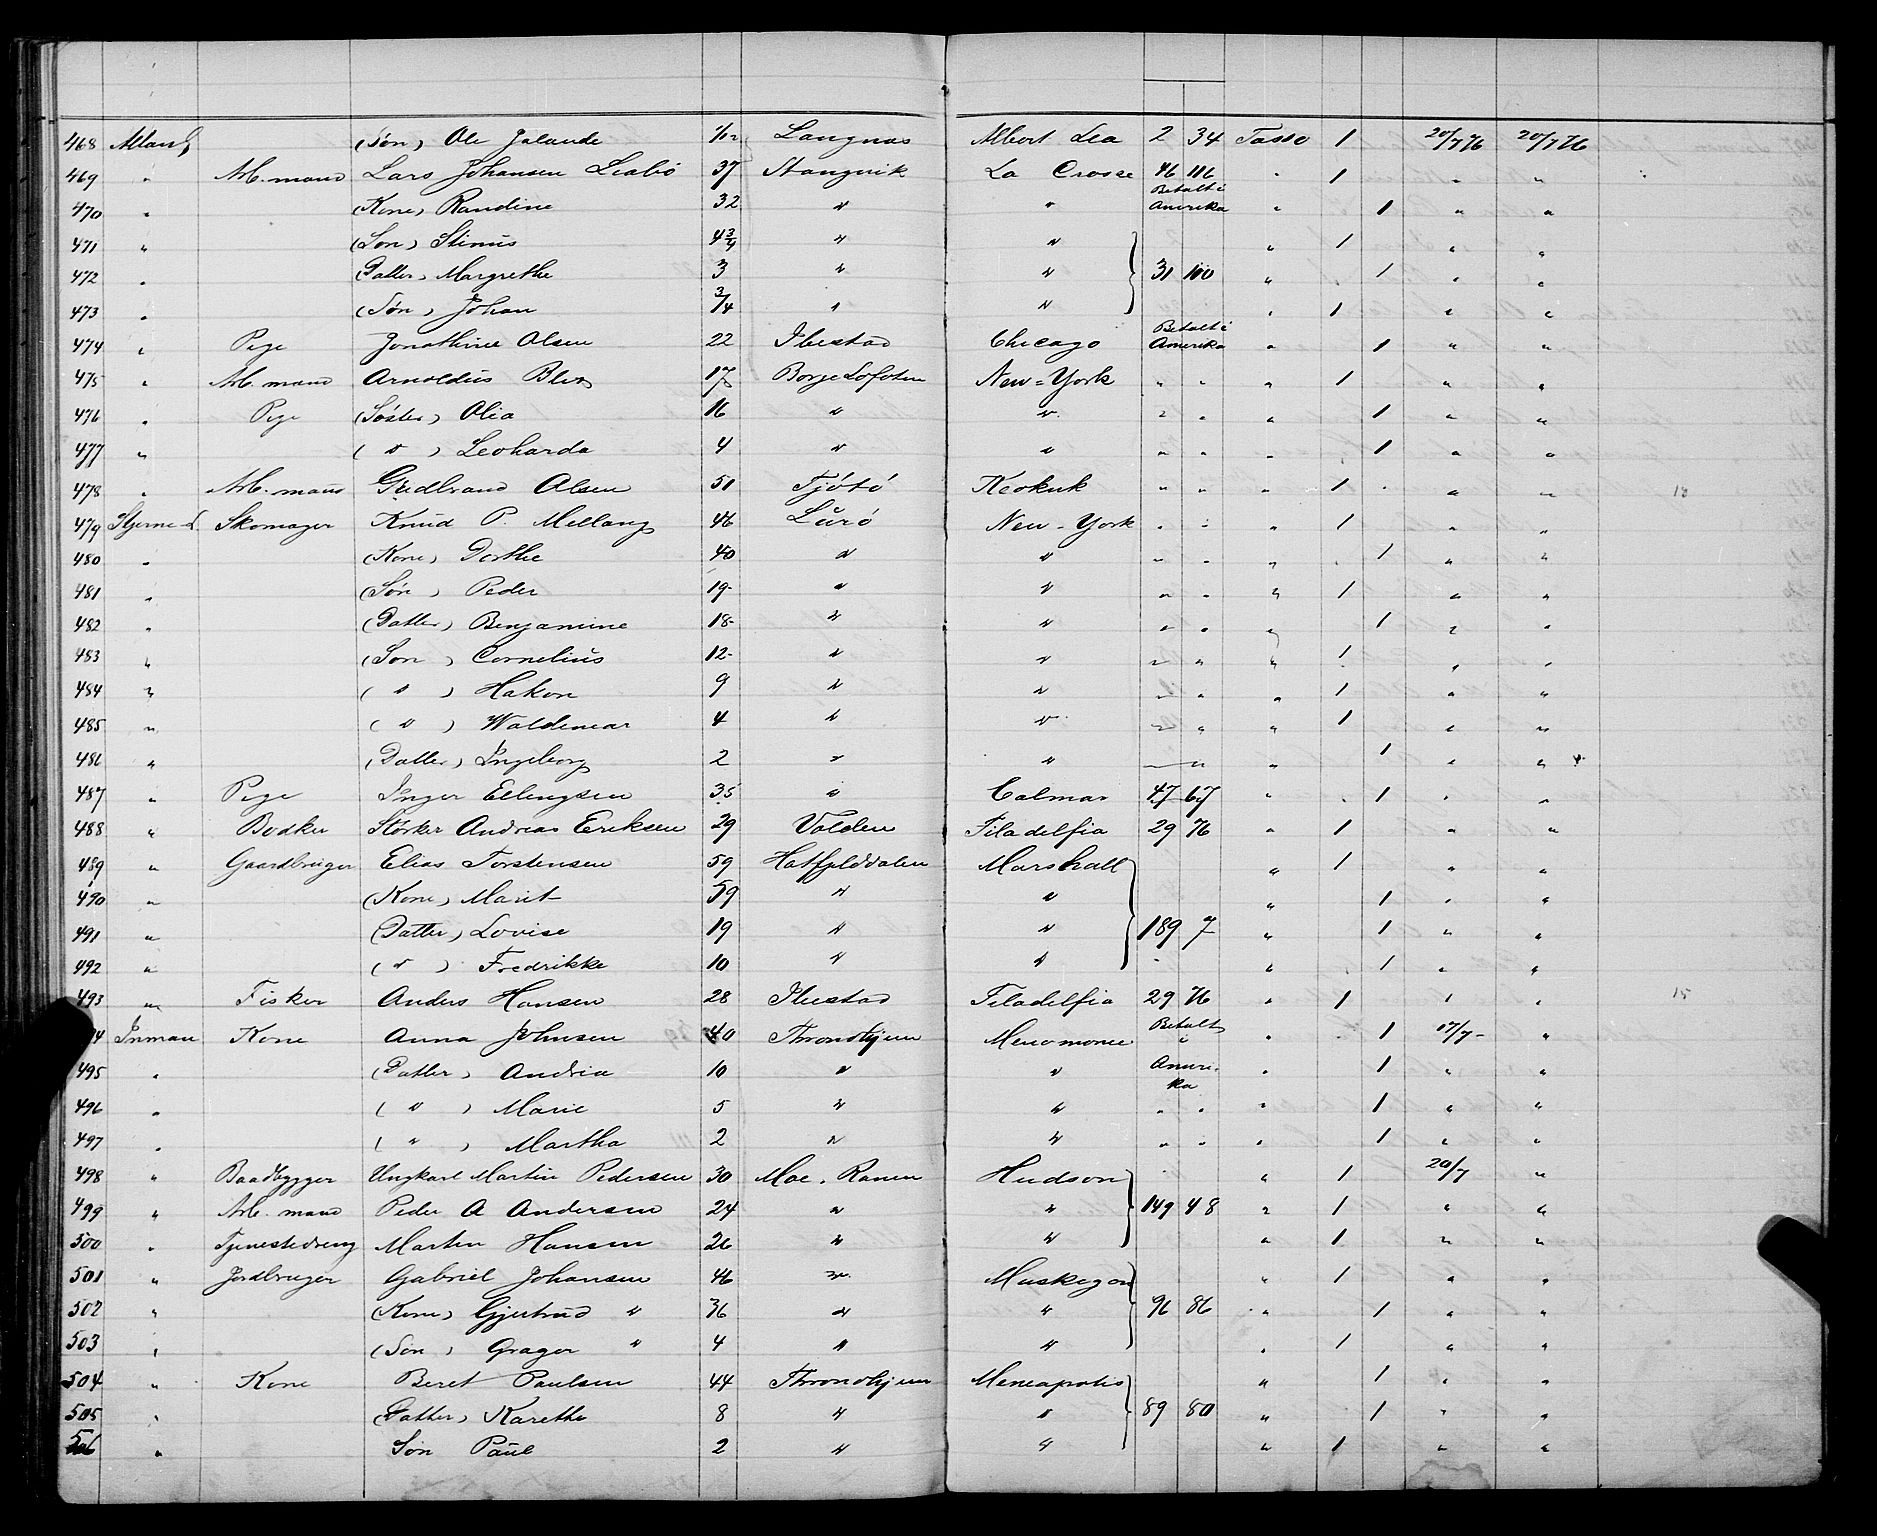 468 Allan L (Søn) Ole Jalande 1/12 Langnæs Albert Lea 2 34 Tasso 1 20/7 76 20/7 76
469 " Arb. mand Lars Johansen Liabö 37 Stangvik La Crosse 46 116 " 1 " "
470 " (Kone) Randine 32 " " Betalt i Amerika " 1 " "
471 " (Søn) Stinus 4 3/4 " " " 1 " "
472 " (Datter) Margrethe 3 " " 31 100 " 1 " "
473 " (Søn) Johan 3/4 " " " 1 " "
474 " Pige Jonathine Olsen 22 Ibestad Chicago Betalt i Amerika " 1 " "
475 " Arb. mand Arnoldus 17 Borge Lofoten New-York " " " 1 " "
476 " Pige (Søster) Olia 16 " " " " " 1 " "
477 " ( " ) Leoharda 4 " " " " " 1 " "
478 " Arb. mand Gudbrand Olsen 51 Tjötö Keokuk " " " 1 " " 18
479 Stjerne-L. Skomager Knud P. Mellang 46 Lurö New-York " " " 1 " "
480 " (Kone) Dorthe 40 " " " " " 1 " "
481 " (Søn) Peder 19 " " " " " 1 " "
482 " (Datter) Benjamine 18 " " " " " 1 " "
483 " (Søn) Cornelius 12 " " " " " 1 " "
484 " ( " ) Hakon 9 " " " " " 1 " "
485 " ( " ) Waldemar 4 " " " " " 1 " "
486 " (Datter) Ingeborg 2 " " " " " 1 " "
487 " Pige Inger Ellingsen 35 " Calmar 47 67 " 1 " "
488 " Bødker Størker Andreas Eriksen 29 Volden Filadelfia 29 76 " 1 " "
489 " Gaardbruger Elias Torstensen 59 Hatfjelddalen Marshall " 1 " "
490 " (Kone) Marit 59 " " " 1 " "
491 " (Datter) Lovise 19 " " 189 7 " 1 " "
492 " ( " ) Fredrikke 10 " " " 1 " "
493 " Fisker Anders Hansen 28 Ibestad Filadelfia 29 76 " 1 " " 15
94 Inman Kone Anna Johnsen 40 Throndhjem Menomonee Betalt i " 1 17/7 "
495 " (Datter) Andrea 10 " " Ameri-ka " 1 " "
496 " ( " ) Marie 5 " " " " " 1 " "
497 " ( " ) Martha 2 " " " " " 1 " "
498 " Baadbygger Ungkarl Martin Pedersen 30 Moe, Ranen Hudson " 1 20/7 "
499 " Arb. mand Peder A Andersen 24 " " 149 48 " 1 " "
500 " Tjenestedreng Martin Hansen 26 " " " 1 " "
501 " Jordbruger Gabriel Johansen 46 " Muskegon " 1 " "
502 " (Kone) Gjertrud " 36 " " 96 86 " 1 " "
503 " (Søn) Grager " 4 " " " 1 " "
504 " Kone Beret Paulsen 44 Throndhjem Meneapolis " 1 " "
505 " (Datter) Karethe 8 " " 89 80 " 1 " "
506 " Søn Paul 2 " " " 1 " "